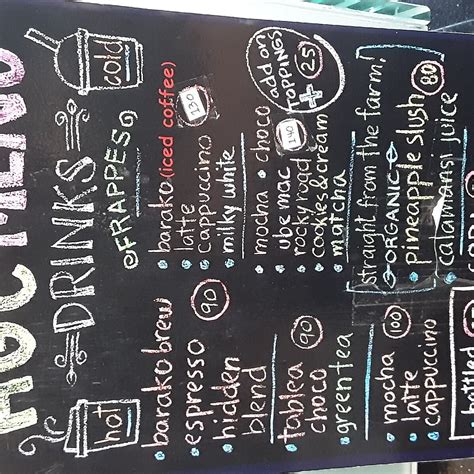 HGC MENU
hot
DRINKS
cold
@FRAPPES
barako brew
espresso
90
hidden
blend
tablea
choco
90
green tea
mocha
100
latte
cappuccino
barako (iced coffee)
latte
130
cappuccino
milky white
add on
TOPPINGS
+ 25
mocha • choco
ube mac
140
rocky road
cookies & cream
matcha
straight from the farm!
ORGANIC
pineapple slush
80
calamansi juice